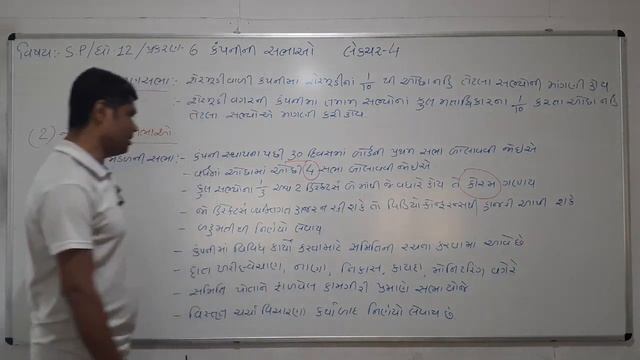 વિષય:- S.P/ધો 12/પ્રકરણ- 6 કંપનીની સભાઓ લેક્ચર-4
સભા:- શેરમૂડીવાળી કંપનીમાં શેરમૂડીનાં 1/10 થી ઓછા નહિ તેટલા સભ્યોની માંગણી હોય
:- શેરમૂડી વગરની કંપનીમાં તમામ સભ્યોનાં કુલ મતાધિકારના 1/10 કરતા ઓછા નહિ
તેટલા સભ્યોએ માંગણી કરી હોય
(2) સભાઓ
મંડળની સભા:- કંપની સ્થાપના પછી 30 દિવસમાં બોર્ડની પ્રથમ સભા બોલાવવી જોઇએ
- વર્ષમાં ઓછામાં ઓછી 4 સભા બોલાવવી જોઇએ
- કુલ સભ્યોના 1/3 અથવા 2 ડિરેક્ટર્સ બે માંથી જે વધારે હોય તે કોરમ ગણાય
- જો ડિરેક્ટર્સ વ્યક્તિગત હાજર ન રહી શકે તો વિડિયો કોન્ફરન્સથી હાજરી આપી શકે
- બહુમતીથી નિર્ણયો લેવાય
- કંપનીમાં વિવિધ કાર્યો કરવા માટે સમિતિની રચના કરવામાં આવે છે
- દા.ત ખરીદ વેચાણ, નાણા, નિકાસ, કાયદા, મોનિટરિંગ વગેરે
- સમિતિ પોતાને સોંપાયેલ કામગીરી પ્રમાણે સભા યોજે
- વિસ્તૃત ચર્ચા વિચારણા કર્યા બાદ નિર્ણયો લેવાય છે